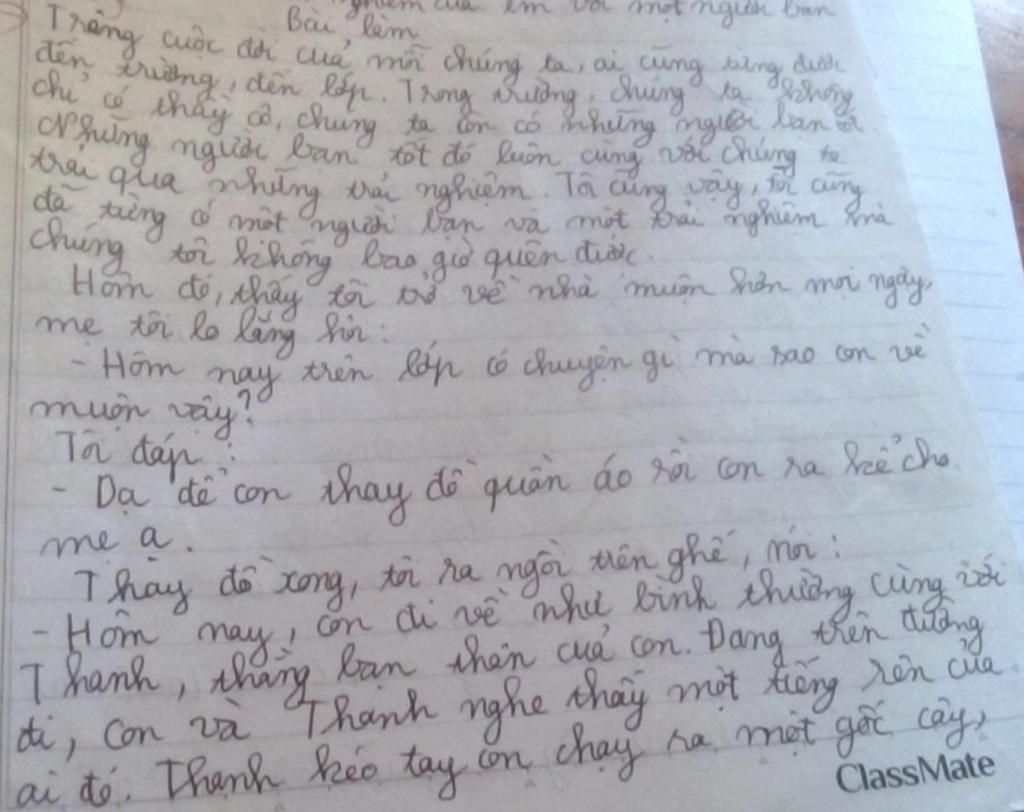 nghiệm của em với một người bạn
Bài làm
Trong cuộc đời của mỗi chúng ta, ai cũng từng được
đến trường, đến lớp. Trong trường, chúng ta không
chỉ có thầy cô, chúng ta còn có những người bạn
Những người bạn tốt đó luôn cùng với chúng ta
trải qua những trải nghiệm. Tôi cũng vậy, tôi cũng
đã từng có một người bạn và một trải nghiệm mà
chúng tôi không bao giờ quên được.
Hôm đó, thấy tôi trở về nhà muộn hơn mọi ngày,
mẹ tôi lo lắng hỏi:
- Hôm nay trên lớp có chuyện gì mà sao con về
muộn vậy?
Tôi đáp:
- Dạ để con thay đồ quần áo rồi con ra kể cho
mẹ ạ.
Thay đồ xong, tôi ra ngồi trên ghế, nói:
- Hôm nay, con đi về như bình thường cùng với
Thanh, thằng bạn thân của con. Đang trên đường
đi, con và Thanh nghe thấy một tiếng rên của
ai đó. Thanh kéo tay con chạy ra một gốc cây,
ClassMate